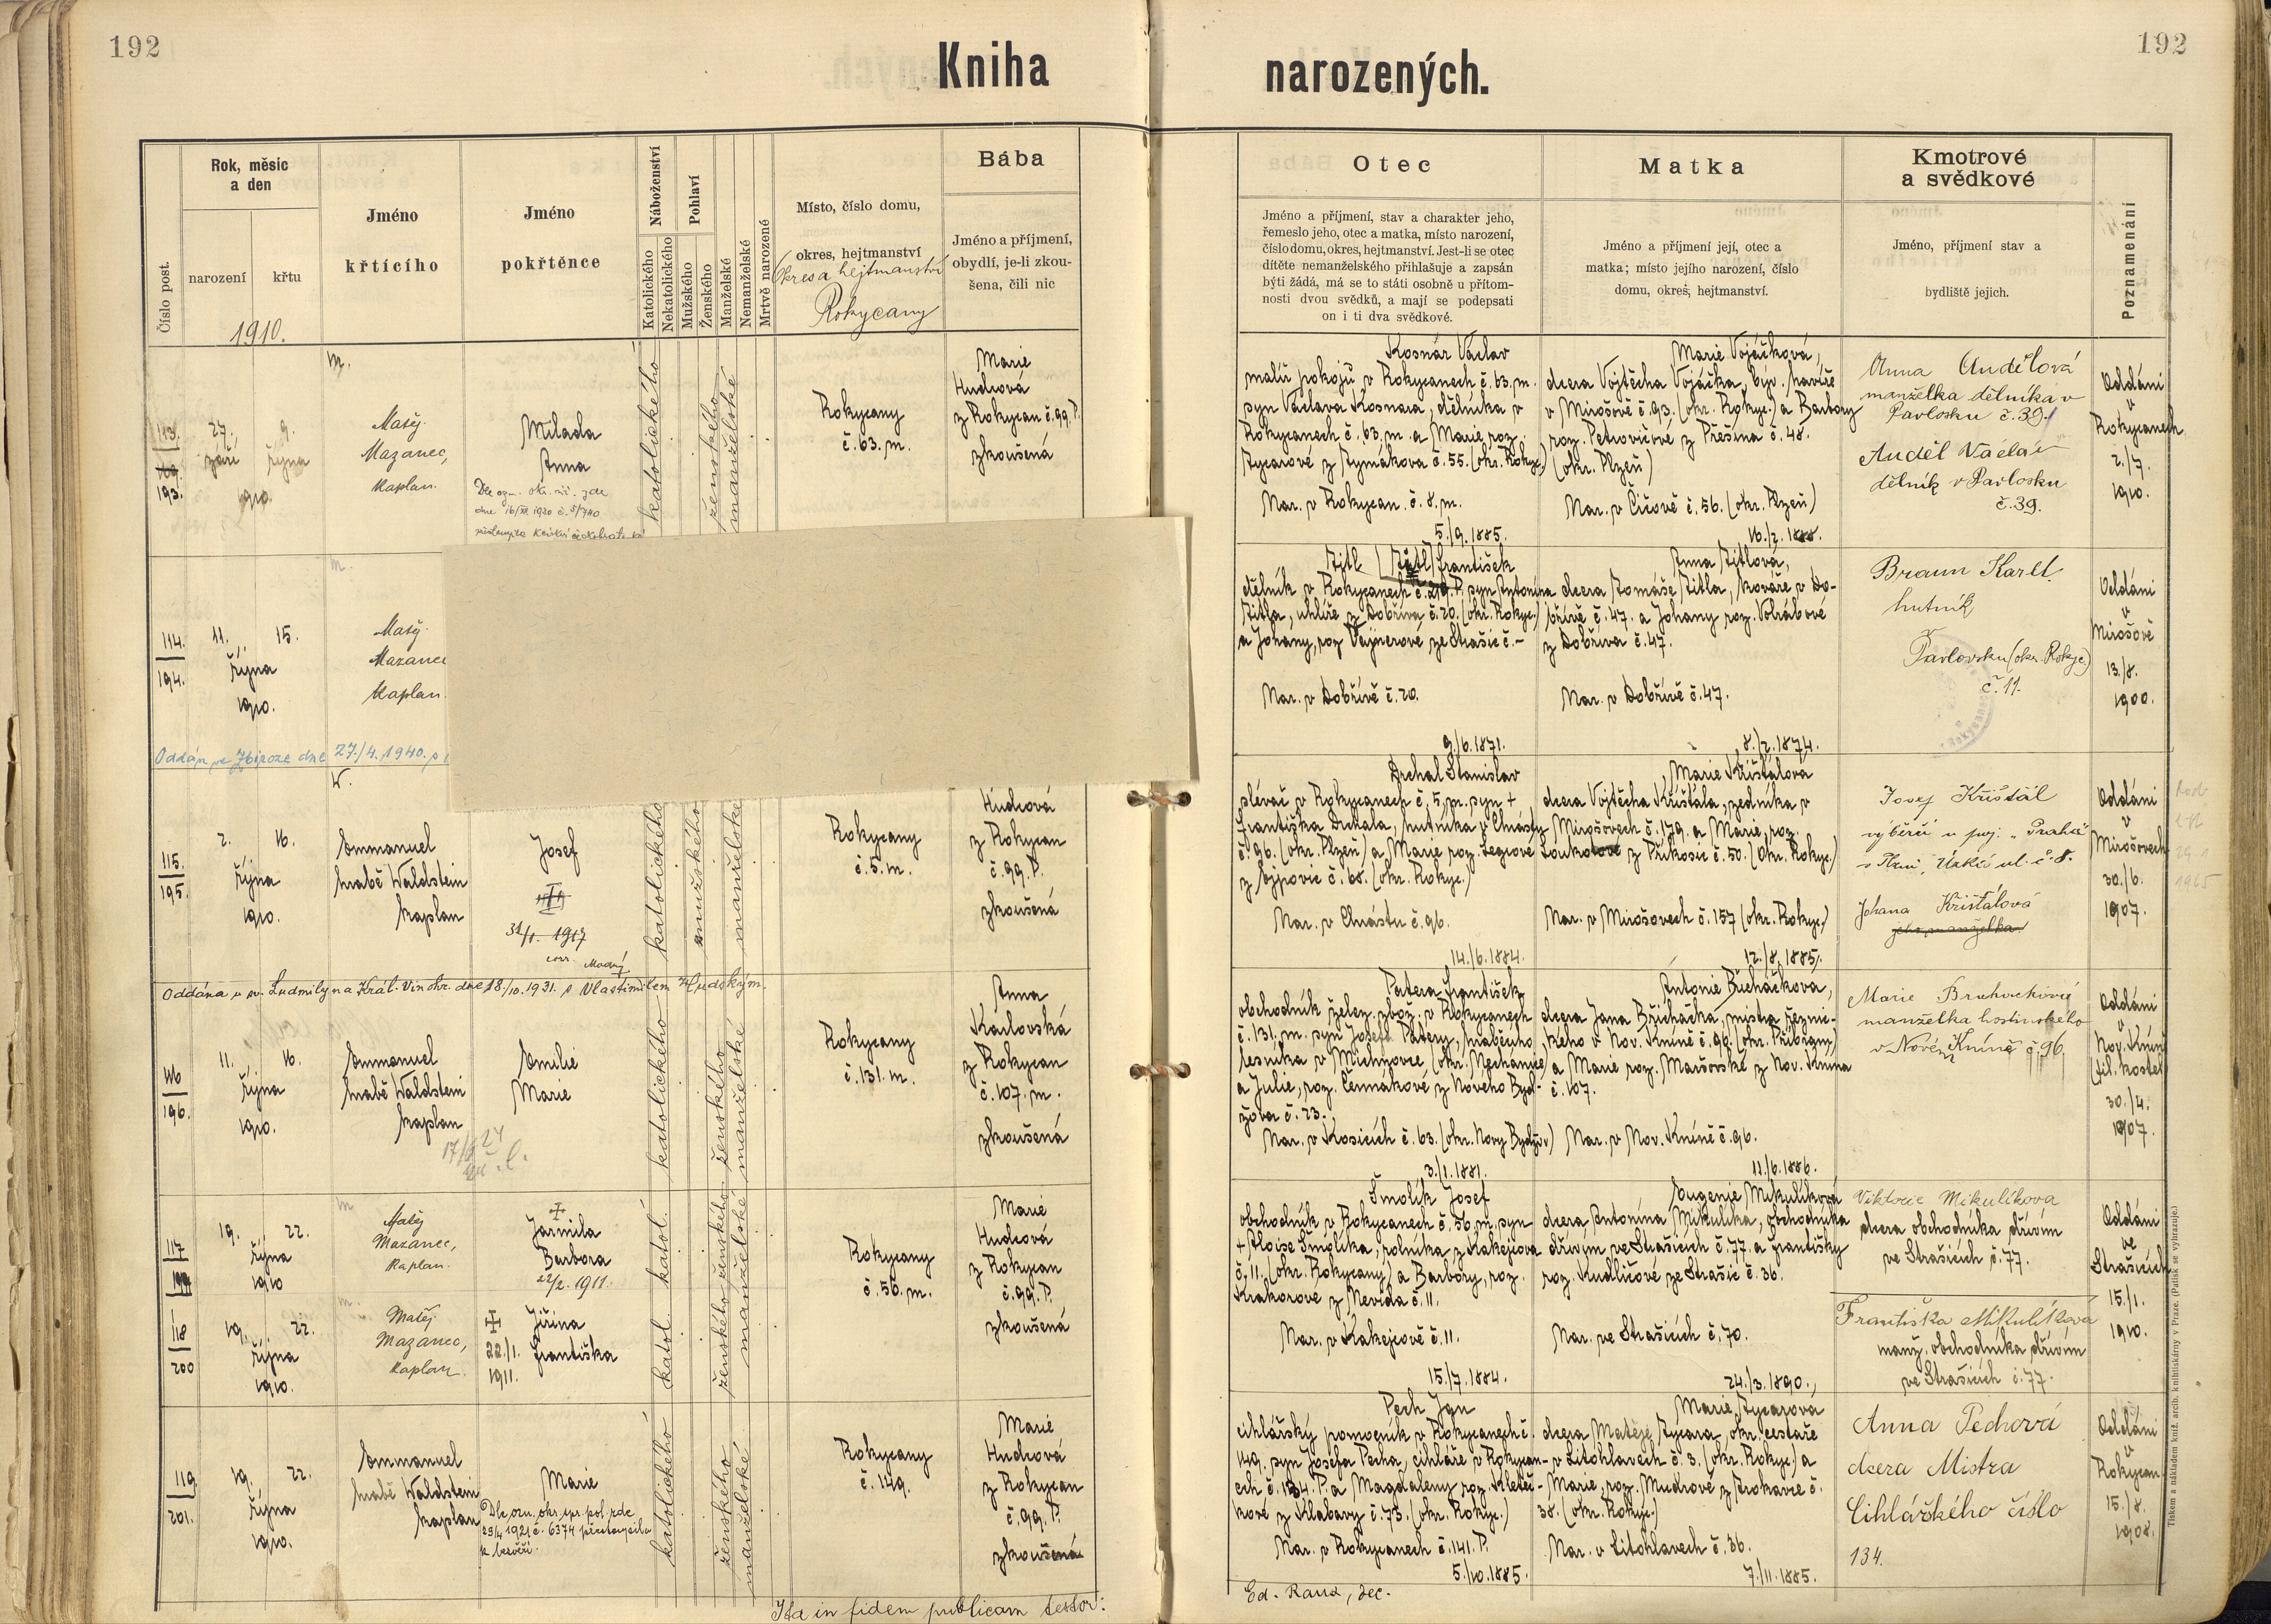 192
192
Kniha
narozených.
Číslo post.
Rok, měsíc
a den
narození
křtu
1910.
Jméno
křtícího
Jméno
pokřtěnce
Náboženství
Katolického
Nekatolického
Pohlaví
Mužského
Ženského
Manželské
Nemanželské
Mrtvě narozené
Místo, číslo domu,
okres, hejtmanství
Okres a hejtmanství
Rokycany
Bába
Jméno a příjmení,
obydlí, je-li zkou-
šena, čili nic
Otec
Jméno a příjmení, stav a charakter jeho,
řemeslo jeho, otec a matka, místo narození,
číslo domu, okres, hejtmanství. Jest-li se otec
dítěte nemanželského přihlašuje a zapsán
býti žádá, má se to státi osobně u přítom-
nosti dvou svědků, a mají se podepsati
on i ti dva svědkové.
Matka
Jméno a příjmení její, otec a
matka; místo jejího narození, číslo
domu, okres, hejtmanství.
Kmotrové
a svědkové
Jméno, příjmení stav a
bydliště jejich.
Poznamenání
113.
193.
27. 9.
září října
1910.
m.
Matěj
Mazanec,
kaplan.
Milada
Anna
katolického
ženského
manželské
Rokycany
č. 63. m.
Marie
Hudcová
z Rokycan č. 99. P.
zkoušená
Kosnár Václav
malíř pokojů v Rokycanech č. 63, m.
syn Václava Kosnara, dělníka v
Rokycanech č. 63, m. a Marie roz.
Rycarové z Rymákova č. 55. (okr. Rokyc.)
Nar. v Rokycan. č. 8. m.
5./9. 1885.
Marie Vojáčková,
dcera Vojtěcha Vojáčka, býv. havíře
v Mirošově č. 93. (okr. Rokyc.) a Barbory
roz. Petrovičové z Přešína č. 48.
(okr. Plzeň)
Nar. v Čičově č. 56. (okr. Plzeň)
16./2. 1888.
Anna Andělová
manželka dělníka v
Pavlosku č. 39.
Anděl Václav
dělník v Pavlosku
č. 39.
Oddáni
v
Rokycanech
2./7.
1910.
114.
194.
11. 15.
října
1910.
m.
Matěj
Mazanec
kaplan.
Oddán ve Zbiroze dne 27./4. 1940. s
František
Nar. v Dobřívě č. 20.
9./6. 1871.
Anna Titlová,
z Dobříva č. 47.
Nar. v Dobřívě č. 47.
8./2. 1874.
Braun Karel
hutník
Pavlovsku (okr. Rokyc.)
č. 11.
Oddáni
v
Mirošově
13./8.
1900.
115.
195.
2. 16.
října
1910.
Emmanuel
hrabě Waldstein
kaplan
Josef
31/1. 1917
katolického
mužského
manželské
Rokycany
č. 5. m.
Hudcová
z Rokycan
č. 99. P.
zkoušená
Drchal Stanislav
slévač v Rokycanech č. 5, m. syn +
Františka Drchala, hutníka v Chrástu
č. 96. (okr. Plzeň) a Marie roz. Legrové
z Ejpovic č. 68. (okr. Rokyc.)
Nar. v Chrástu č. 96.
14./6. 1884.
Marie Křišťálová
dcera Vojtěcha Křišťála, zedníka v
Mirošovech č. 179. a Marie, roz.
Loukotové z Příkosic č. 50. (Okr. Rokyc.)
Nar. v Mirošovech č. 157 (okr. Rokyc.)
12./8. 1885.
Josef Křišťál
výběrčí u poj. „Praha“
Johana Křišťálová
jeho manželka
Oddáni
v
Mirošovech
30./6.
1907.
Oddána u sv. Ludmily na Král. Vinohr. dne 18./10. 1931. s Vlastimilem Hudským.
116
196.
11. 16.
října
1910.
Emmanuel
hrabě Waldstein
kaplan
Emilie
Marie
katolického
ženského
manželské
Rokycany
č. 131. m.
Anna
Karlovská
z Rokycan
č. 107. m.
zkoušená
Patera František
obchodník želez. zbož. v Rokycanech
č. 131. m. syn Josefa Patery, hraběcího
lesníka v Michnovce (okr. Nechanice)
a Julie, roz. Čermákové z Nového Byd-
žova č. 23.
Nar. v Kosicích č. 63. (okr. Nový Bydžov)
3./1. 1881.
Antonie Břicháčkova,
dcera Jana Břicháčka, mistra řezni-
ckého v Nov. Kníně č. 96. (okr. Příbram)
a Marie roz. Maršovské z Nov. Knína
č. 107.
Nar. v Nov. Kníně č. 96.
11./6. 1886.
manželka hostinského
v Novém Kníně č. 96
Oddáni
v
Nov. Kníně
(fil. kostel)
30./4.
1907.
117
19. 22.
října
1910
m
Matěj
Mazanec,
kaplan.
Jarmila
Barbora
22/2. 1911.
katol.
ženského
manželské
Rokycany
č. 56. m.
Marie
Hudcová
z Rokycan
č. 99. P.
zkoušená
118
200
19. 22.
října
1910.
m.
Matěj
Mazanec,
kaplan.
Jiřina
Františka
22./1.
1911.
katol.
ženského
Šmolík Josef
obchodník v Rokycanech č. 56. m. syn
+ Aloise Šmolíka, rolníka z Kakejcova
č. 11. (okr. Rokycany) a Barbory, roz.
Krakorové z Nevida č. 11.
Nar. v Kakejcově č. 11.
15./7. 1884.
Eugenie Mikulíková
dcera Antonína Mikulíka, obchodníka
dřívím ve Strašicích č. 77. a Františky
roz. Kudličové ze Strašic č. 36.
Nar. ve Strašicích č. 70.
24./3. 1890.
Viktorie Mikulíkova
dcera obchodníka dřívím
ve Strašicích č. 77.
Františka Mikulíková
manž. obchodníka dřívím
ve Strašicích č. 77.
Oddáni
ve
Strašicích
15./1.
1910.
119
201.
19. 22.
října
1910.
Emmanuel
hrabě Waldstein
kaplan
Marie
Dle ozn. okr. spr. pol. zde
29/4 1921 č. 6374 přestoupila
k bezvěří.
katolického
ženského
manželské
Rokycany
č. 149.
Marie
Hudcová
z Rokycan
č. 99. P.
zkoušená
Pech Jan
cihlářský pomocník v Rokycanech č.
149. syn Josefa Pecha, cihláře v Rokycan-
ech č. 134. P. a Magdaleny roz. Kleteč-
kové z Klabavy č. 73. (okr. Rokyc.)
Nar. v Rokycanech č. 141. P.
5./10. 1885.
Marie Rycarová
dcera Matěje Rycara, okr. cestáře
v Litohlavech č. 3. (okr. Rokyc.) a
Marie, roz. Mudrové z Brokavce č.
38. (okr. Rokyc.)
Nar. v Litohlavech č. 36.
7./11. 1885.
Anna Pechová
dcera Mistra
Cihlářského číslo
134.
Oddáni
v
Rokycan
15./8.
1908.
Ita in fidem publicam testor:
Tiskem a nákladem kníž. arcib. knihtiskárny v Praze. (Patisk se vyhrazuje.)